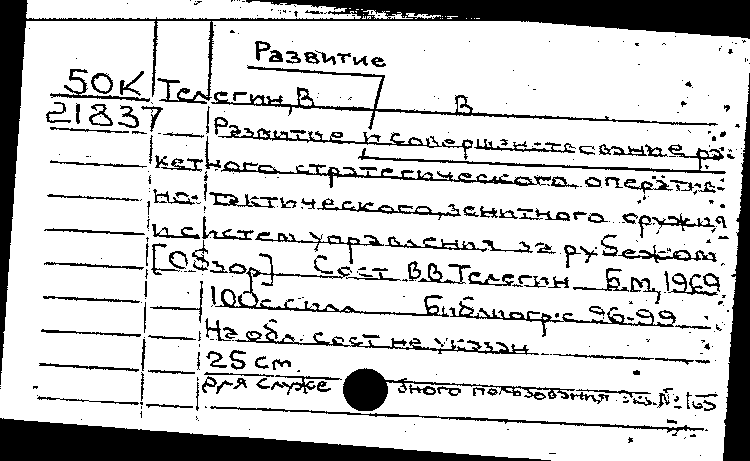 Развитие
50К Телегин, В В
21837
Развитие и совершенствование ра-
кетного стратегического, оператив-
но-тактического, зенитного оружия
и систем управления за рубежом
[Обзор] Сост В.В.Телегин Б.м, 1969
100с с илл Библиогр: с 96-99
На обл. сост не указан
25 см.
Для служебного пользования Экз.№165